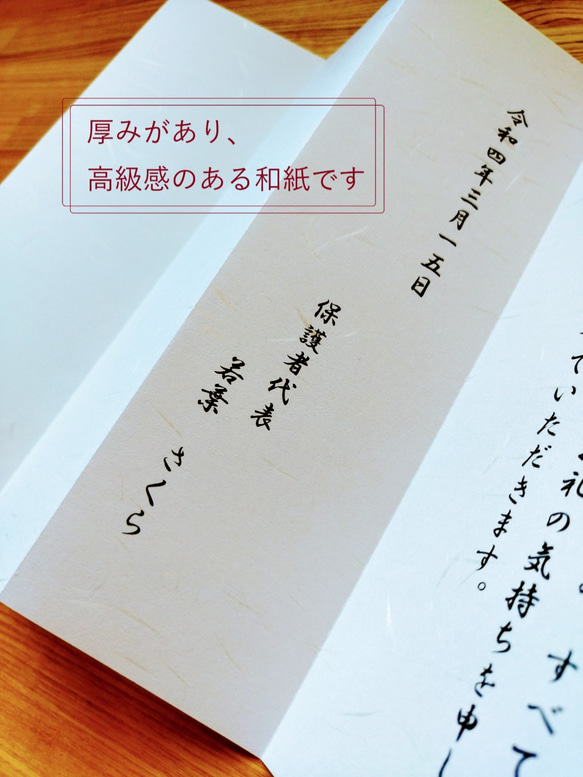 厚みがあり、
高級感のある和紙です
すべて
礼の気持ちを申し
ていただきます。
令和四年三月一五日
保護者代表
若葉 さくら